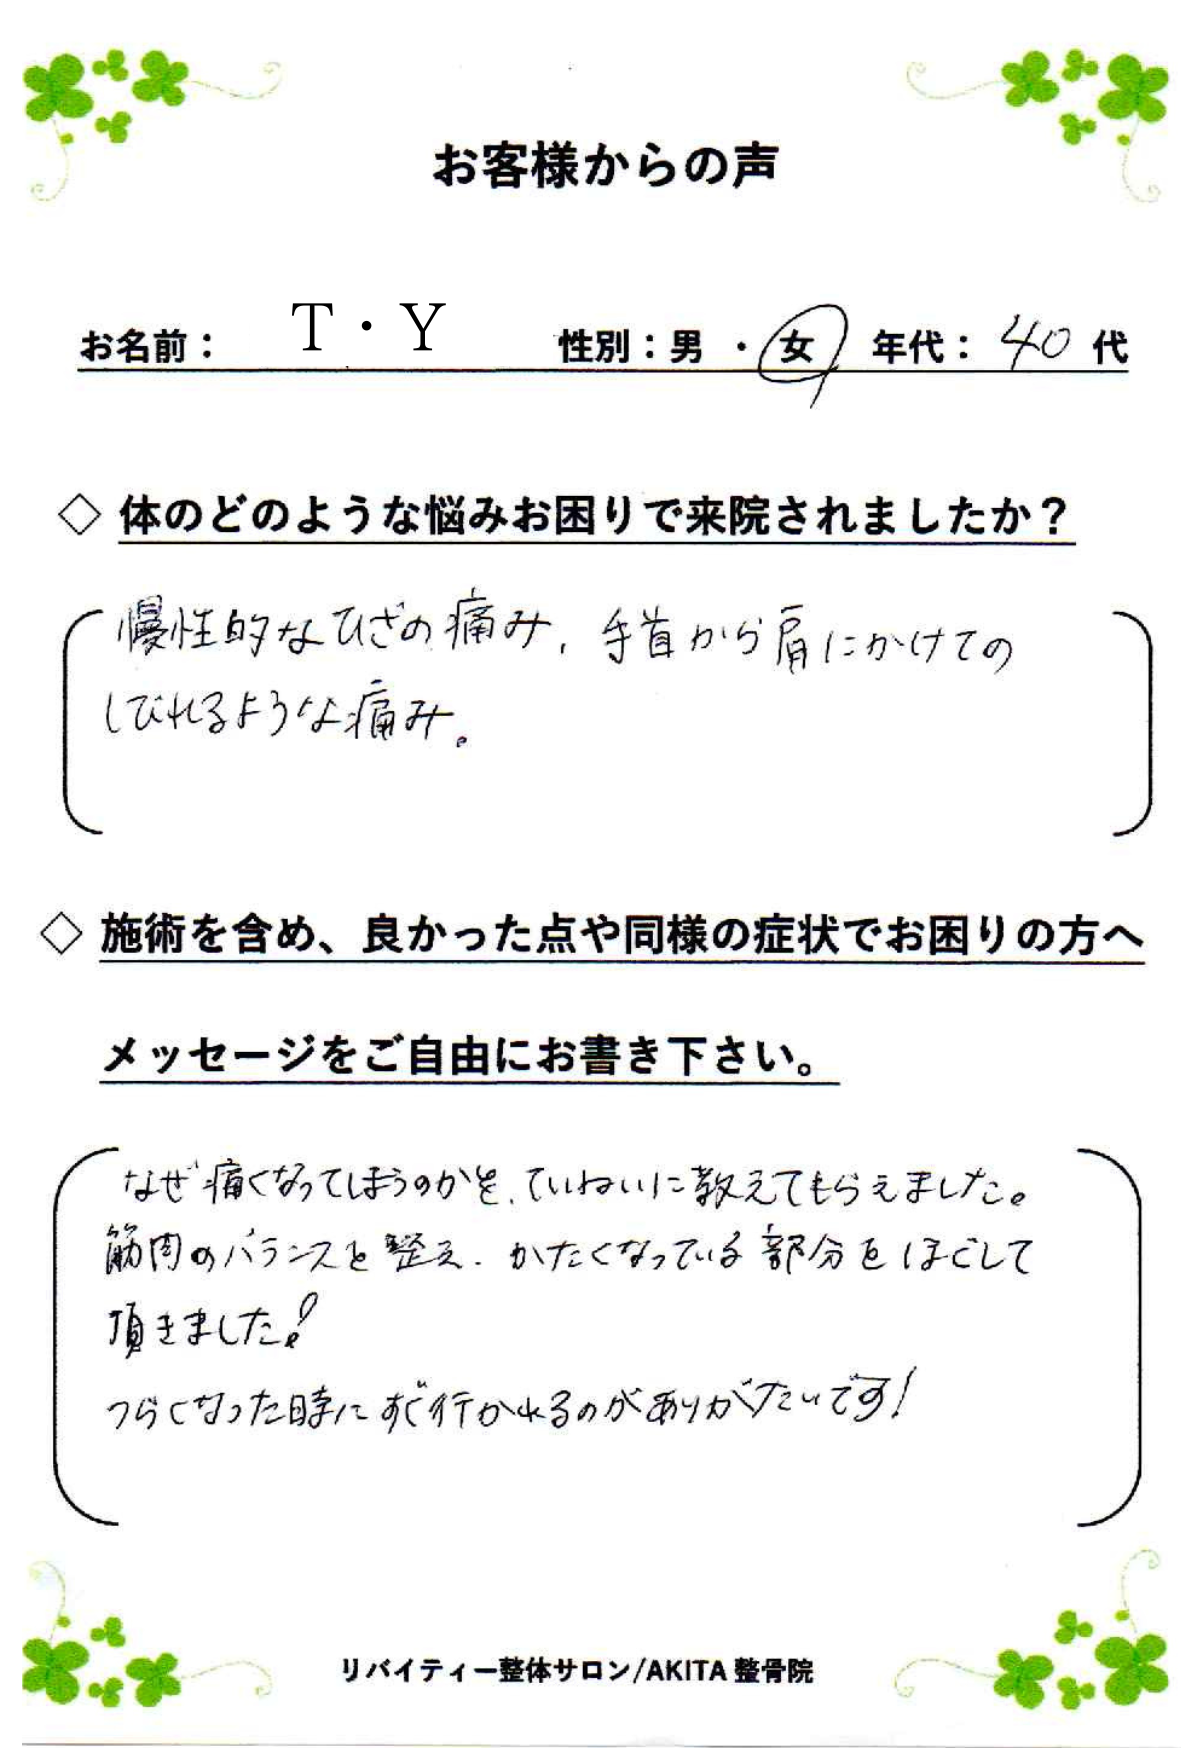 お客様からの声
お名前： T・Y 性別：男 ・ 女 年代： 40 代
◇ 体のどのような悩みお困りで来院されましたか？
慢性的なひざの痛み、手首から肩にかけての
しびれるような痛み。
◇ 施術を含め、良かった点や同様の症状でお困りの方へ
メッセージをご自由にお書き下さい。
なぜ痛くなってしまうのかを、ていねいに教えてもらえました。
筋肉のバランスを整え、かたくなっている部分をほぐして
頂きました！
つらくなった時にすぐ行かれるのがありがたいです！
リバイティー整体サロン/AKITA 整骨院